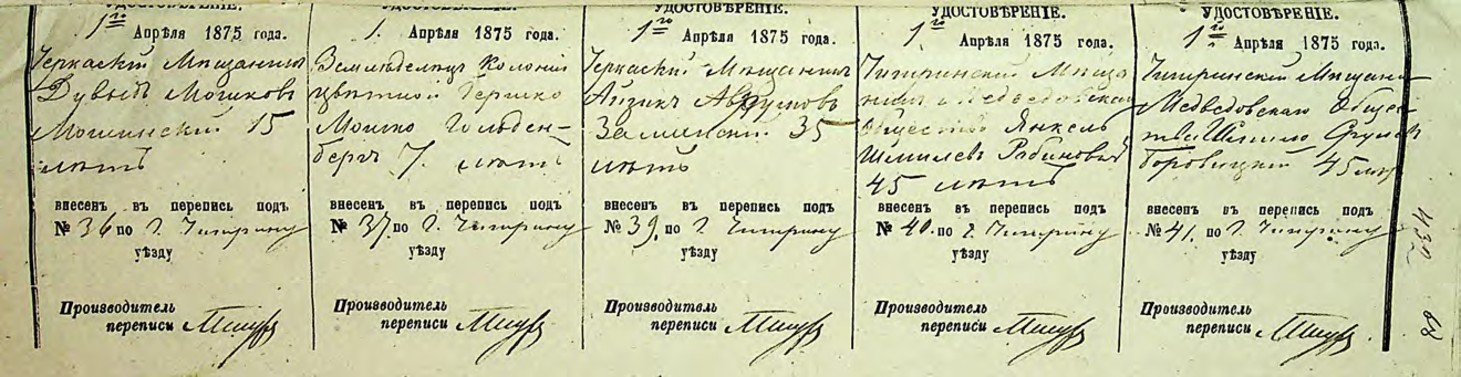 УДОСТОВѢРЕНІЕ.
1го Апрѣля 1875 года.
Черкаскій Мѣщанинъ
Дувыдъ Мошковъ
Мошинскій 15
лѣтъ
внесенъ въ перепись подъ
№ 36 по г. Чигирину
уѣзду
Производитель
переписи
УДОСТОВѢРЕНІЕ.
1. Апрѣля 1875 года.
Земледелецъ Колоніи
Цвѣтной Гершко
Мошко Гольден-
бергъ 7. лѣтъ
внесенъ въ перепись подъ
№ 37. по г. Чигирину
уѣзду
Производитель
переписи
УДОСТОВѢРЕНІЕ.
1го Апрѣля 1875 года.
Черкаскій Мѣщанинъ
Айзикъ Аврумовъ
35
лѣтъ
внесенъ въ перепись подъ
№ 39. по г. Чигирину
уѣзду
Производитель
переписи
УДОСТОВѢРЕНІЕ.
1го Апрѣля 1875 года.
Чигиринскій Мѣща-
нинъ Медведовскаго
Общества Янкель
Шмилевъ Рабиновичъ
45 лѣтъ
внесенъ въ перепись подъ
№ 40. по г. Чигирину
уѣзду
Производитель
переписи
УДОСТОВѢРЕНІЕ.
1го Апрѣля 1875 года.
Чигиринскій Мѣщани-
Медведовскаго Общес-
тва Сруль
Боровицкій 45 лѣт
внесенъ въ перепись подъ
№ 41. по г. Чигирину
уѣзду
Производитель
переписи